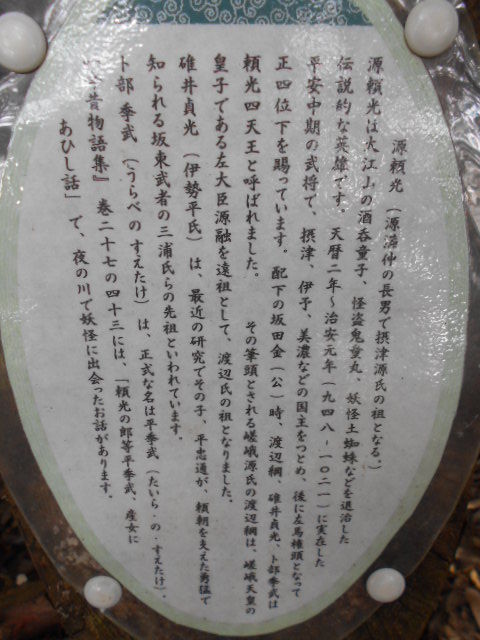 源頼光（源満仲の長男で摂津源氏の祖となる。）
源頼光は大江山の酒呑童子、怪盗鬼童丸、妖怪土蜘蛛などを退治した
伝説的な英雄です。天暦二年～治安元年（九四八－一〇二一）に実在した
平安中期の武将で、摂津、伊予、美濃などの国主をつとめ、後に左馬権頭となって
正四位下を賜っています。配下の坂田金（公）時、渡辺綱、碓井貞光、卜部季武は
頼光四天王と呼ばれました。　その筆頭とされる嵯峨源氏の渡辺綱は、嵯峨天皇の
皇子である左大臣源融を遠祖として、渡辺氏の祖となりました。
碓井貞光（伊勢平氏）は、最近の研究でその子、平忠通が、頼朝を支えた勇猛で
知られる坂東武者の三浦氏らの先祖といわれています。
卜部季武（うらべのすえたけ）は、正式な名は平季武（たいら・の・すえたけ）。
『今昔物語集』巻二十七の四十三には、「頼光の郎等平季武、産女に
あひし話」で、夜の川で妖怪に出会ったお話があります。